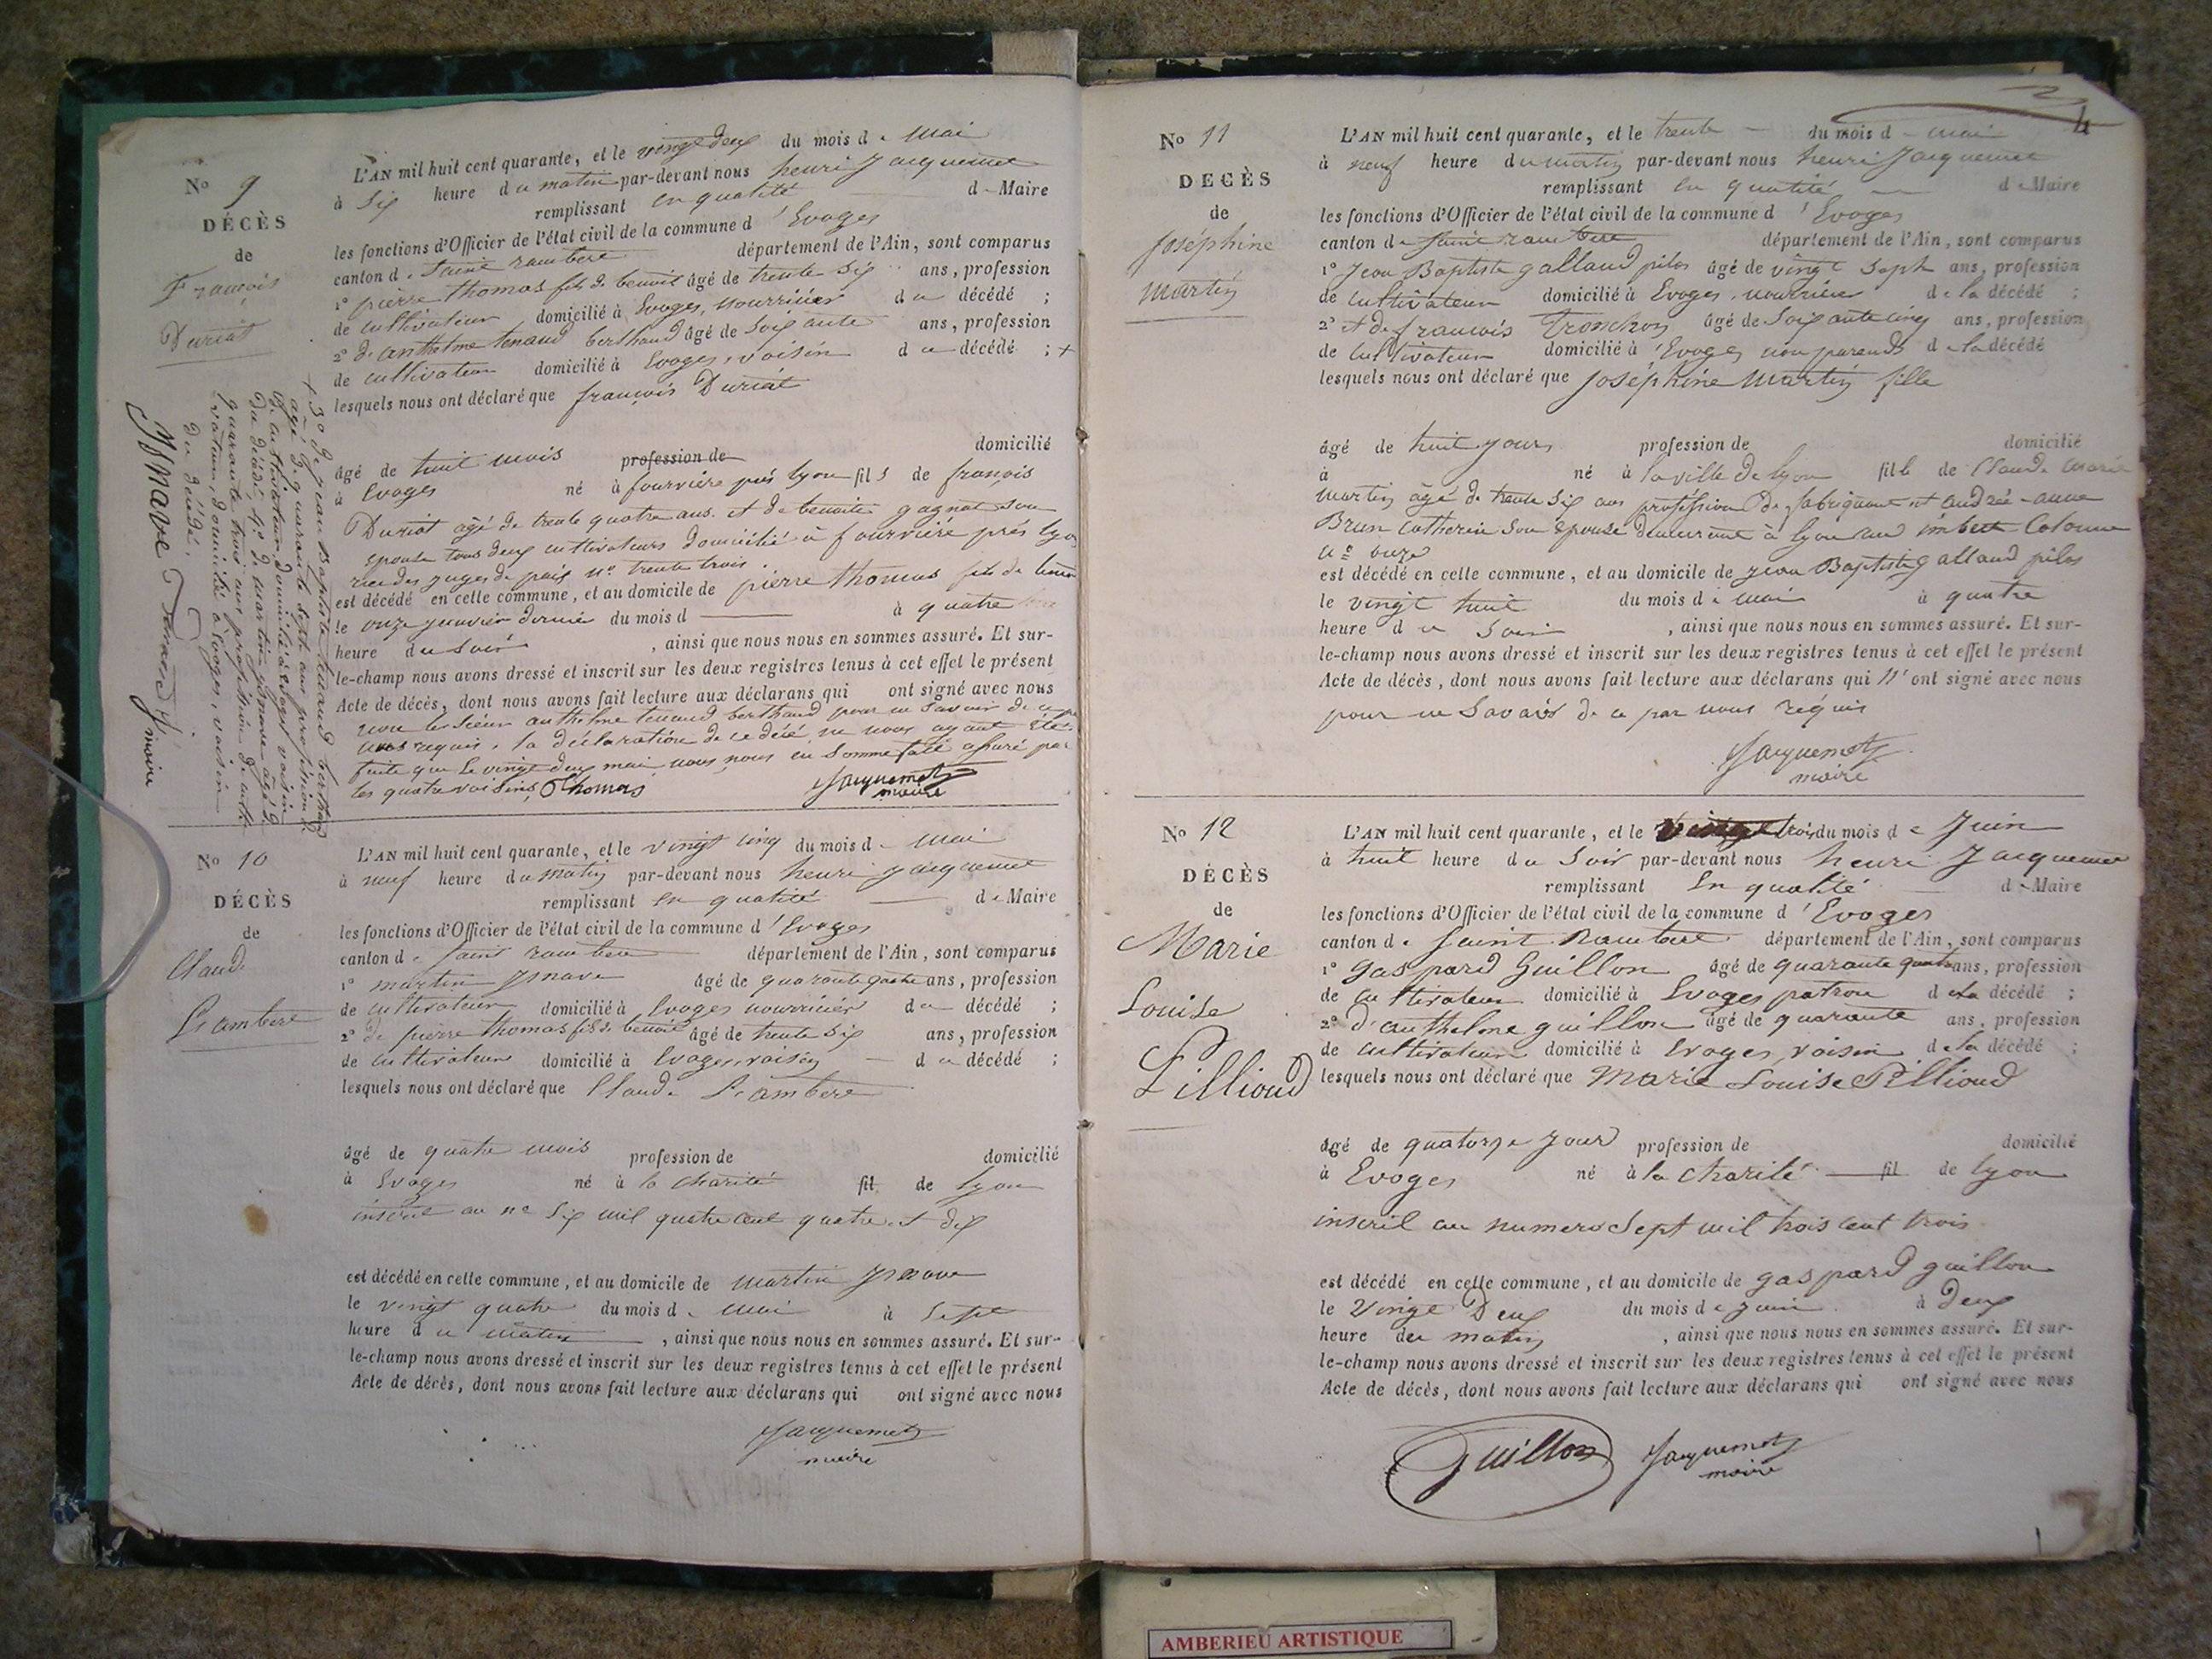 No 9
DÉCÈS
de
François
Duriat
L'AN mil huit cent quarante, et le vingt deux du mois de Mai
à Six heure du matin par-devant nous henri Jacquemet
remplissant en qualité de Maire
les fonctions d'Officier de l'état civil de la commune d'Evoges
canton de Saint rambert département de l'Ain, sont comparus
1° pierre thomas fils de benoit âgé de trente Six ans, profession
de cultivateur domicilié à Evoges, nourricier du décédé ;
2° de anthelme tenand berthaud âgé de Soixante ans, profession
de cultivateur domicilié à Evoges, voisin du décédé ; +
lesquels nous ont déclaré que françois Duriat
âgé de huit mois profession de domicilié
à Evoges né à fourvière près lyon fils de françois
Duriat âgé de trente quatre ans et de benoite gagnat son
epouse tous deux cultivateurs domicilié à fourvière près lyon
rue des juges de paix n° trente trois.
est décédé en cette commune, et au domicile de pierre thomas fils de benoit
le onze janvier dernier du mois d à quatre
heure du soir, ainsi que nous nous en sommes assuré. Et sur-
le-champ nous avons dressé et inscrit sur les deux registres tenus à cet effet le présent
Acte de décès, dont nous avons fait lecture aux déclarans qui ont signé avec nous
non le Sieur anthelme tenand berthaud pour ne savoir de ce
requis, la déclaration de ce décé ne nous ayant été
faite que le vingt deux mai nous nous en somme fait assuré par
les quatre voisins, Thomas Jacquemet
maire
+ 3° de jean Baptiste tenand berthaud
âgé de quarante sept ans profession
de cultivateur domicilié à Evoges voisin
du décédé, 4° de martin ysnave âgé de
quarante trois ans profession de culti-
vateur, domicilié à Evoges, voisin
du décédé.
Ysnave Tenand maire
No 10
DÉCÈS
de
Claude
L'AN mil huit cent quarante, et le vingt cinq du mois de Mai
à neuf heure du matin par-devant nous henri jacquemet
remplissant en qualité de Maire
les fonctions d'Officier de l'état civil de la commune d'Evoges
canton de Saint rambert département de l'Ain, sont comparus
1° martin ysnave âgé de quarante quatre ans, profession
de cultivateur domicilié à Evoges nourricier du décédé ;
2° de pierre thomas fils de benoit âgé de trente Six ans, profession
de cultivateur domicilié à Evoges, voisin du décédé ;
lesquels nous ont déclaré que Claude
âgé de quatre mois profession de domicilié
à Evoges né à la charité fil de lyon
inscrit au n° Six mil quatre cent quatre et dix
est décédé en cette commune, et au domicile de martin ysnave
le vingt quatre du mois de mai à Sept
heure du matin, ainsi que nous nous en sommes assuré. Et sur-
le-champ nous avons dressé et inscrit sur les deux registres tenus à cet effet le présent
Acte de décès, dont nous avons fait lecture aux déclarans qui ont signé avec nous
Jacquemet
maire
4
No 11
DECÈS
de
Joséphine
martin
L'AN mil huit cent quarante, et le trente du mois de mai
à neuf heure du matin par-devant nous henri Jacquemet
remplissant en qualité de Maire
les fonctions d'Officier de l'état civil de la commune d'Evoges
canton de Saint rambert département de l'Ain, sont comparus
1° Jean Baptiste galland pilos âgé de vingt Sept ans, profession
de cultivateur domicilié à Evoges, nourricier de la décédé ;
2° et de françois Tronchon âgé de Soixante cinq ans, profession
de cultivateur domicilié à Evoges non parends de la décédé
lesquels nous ont déclaré que Joséphine Martin fille
âgé de huit jours profession de domicilié
à né à la ville de lyon fille de Claude Marie
martin âgé de trente Six ans profession de fabriquant et andrée-anne
Brun Catherin son épouse demeurant à lyon rue imbert Colomes
n° onze
est décédé en cette commune, et au domicile de jean Baptiste galland pilos
le vingt huit du mois de mai à quatre
heure du Soir, ainsi que nous nous en sommes assuré. Et sur-
le-champ nous avons dressé et inscrit sur les deux registres tenus à cet effet le présent
Acte de décès, dont nous avons fait lecture aux déclarans qui n'ont signé avec nous
pour ne Savoir de ce par nous réquis
Jacquemet
maire
No 12
DÉCÈS
de
Marie
Louise
Pillioud
L'AN mil huit cent quarante, et le Vingt trois du mois de Juin
à huit heure du Soir par-devant nous henri Jacquemet
remplissant En qualité de Maire
les fonctions d'Officier de l'état civil de la commune d'Evoges
canton de Saint Rambert département de l'Ain, sont comparus
1° gaspard Guillon âgé de quarante quatre ans, profession
de cultivateur domicilié à Evoges patron de la décédé ;
2° d'anthelme guillon âgé de quarante ans, profession
de cultivateur domicilié à Evoges, voisin de la décédé ;
lesquels nous ont déclaré que Marie Louise Pillioud
âgé de quatorze jour profession de domicilié
à Evoges né à la charité fil de lyon
inscrit au numero Sept mil trois cent trois
est décédé en cette commune, et au domicile de gaspard guillon
le Vingt Deux du mois de juin à Deux
heure du matin, ainsi que nous nous en sommes assuré. Et sur-
le-champ nous avons dressé et inscrit sur les deux registres tenus à cet effet le présent
Acte de décès, dont nous avons fait lecture aux déclarans qui ont signé avec nous
Guillon Jacquemet
maire
AMBERIEU ARTISTIQUE